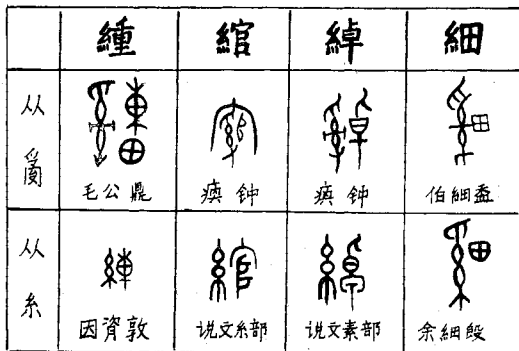 緟 綰 綽 細
从𤔔
毛公鼎 钟 钟 伯細盉
从糸
因資敦 说文糸部 说文素部 余細𣪘